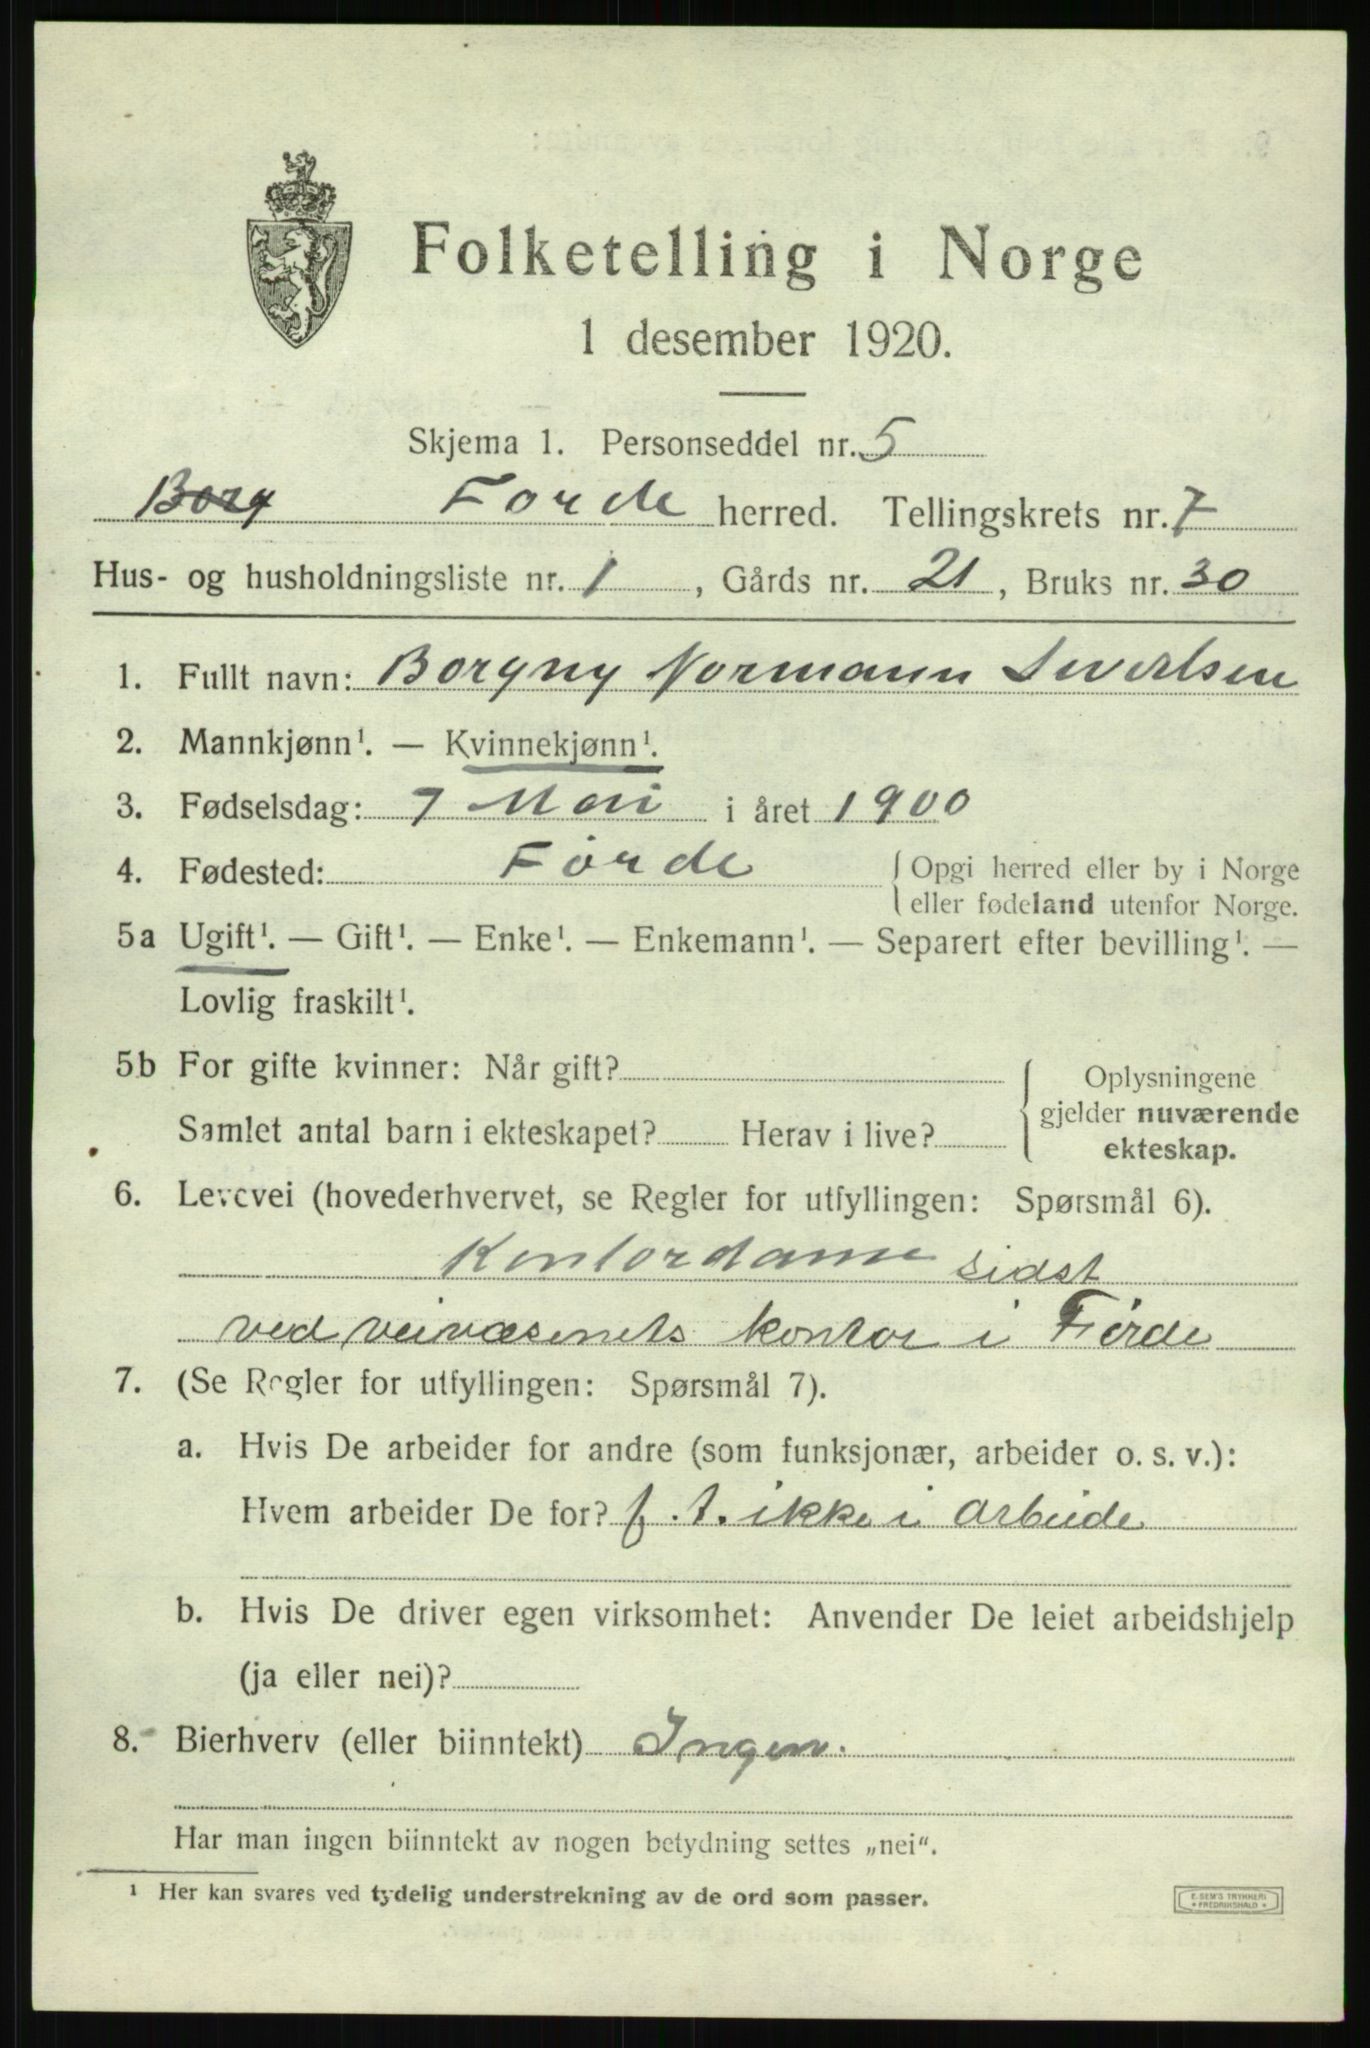 Folketelling i Norge
1 desember 1920.
Skjema 1. Personseddel nr. 5
Borg Førde herred. Tellingskrets nr. 7
Hus- og husholdningsliste nr. 1, Gårds nr. 21, Bruks nr. 30
1. Fullt navn: Borgny Normann Sivertsen
2. Mannkjønn¹. — Kvinnekjønn¹.
3. Fødselsdag: 7 Mai i året 1900
4. Fødested: Førde { Opgi herred eller by i Norge
eller fødeland utenfor Norge.
5a Ugift¹. — Gift¹. — Enke¹. — Enkemann¹. — Separert efter bevilling¹. —
Lovlig fraskilt¹.
5b For gifte kvinner: Når gift? { Oplysningene
gjelder nuværende
Samlet antal barn i ekteskapet? Herav i live?
ekteskap.
6. Levevei (hovederhvervet, se Regler for utfyllingen: Spørsmål 6).
Kontordame sidst
ved veivæsenets kontor i Førde
7. (Se Regler for utfyllingen: Spørsmål 7).
a. Hvis De arbeider for andre (som funksjonær, arbeider o. s. v.):
Hvem arbeider De for? f. t. ikke i arbeide
b. Hvis De driver egen virksomhet: Anvender De leiet arbeidshjelp
(ja eller nei)?
8. Bierhverv (eller biinntekt) Ingen.
Har man ingen biinntekt av nogen betydning settes „nei".
¹ Her kan svares ved tydelig understrekning av de ord som passer.
E. SEM'S TRYKKERI
* FREDRIKSHALD *